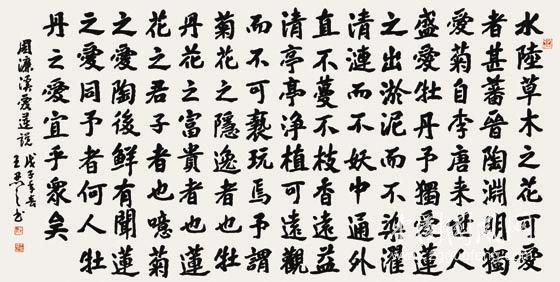 水陸草木之花可愛
者甚蕃晉陶淵明獨
愛菊自李唐来世人
盛愛牡丹予獨愛蓮
之出淤泥而不染濯
清漣而不妖中通外
直不蔓不枝香遠益
清亭亭净植可遠觀
而不可褻玩焉予謂
菊花之隱逸者也牡
丹花之富貴者也蓮
花之君子者也噫菊
之愛陶後鮮有聞蓮
之愛同予者何人牡
丹之愛宜乎衆矣
周濂溪愛蓮説 戊子年春